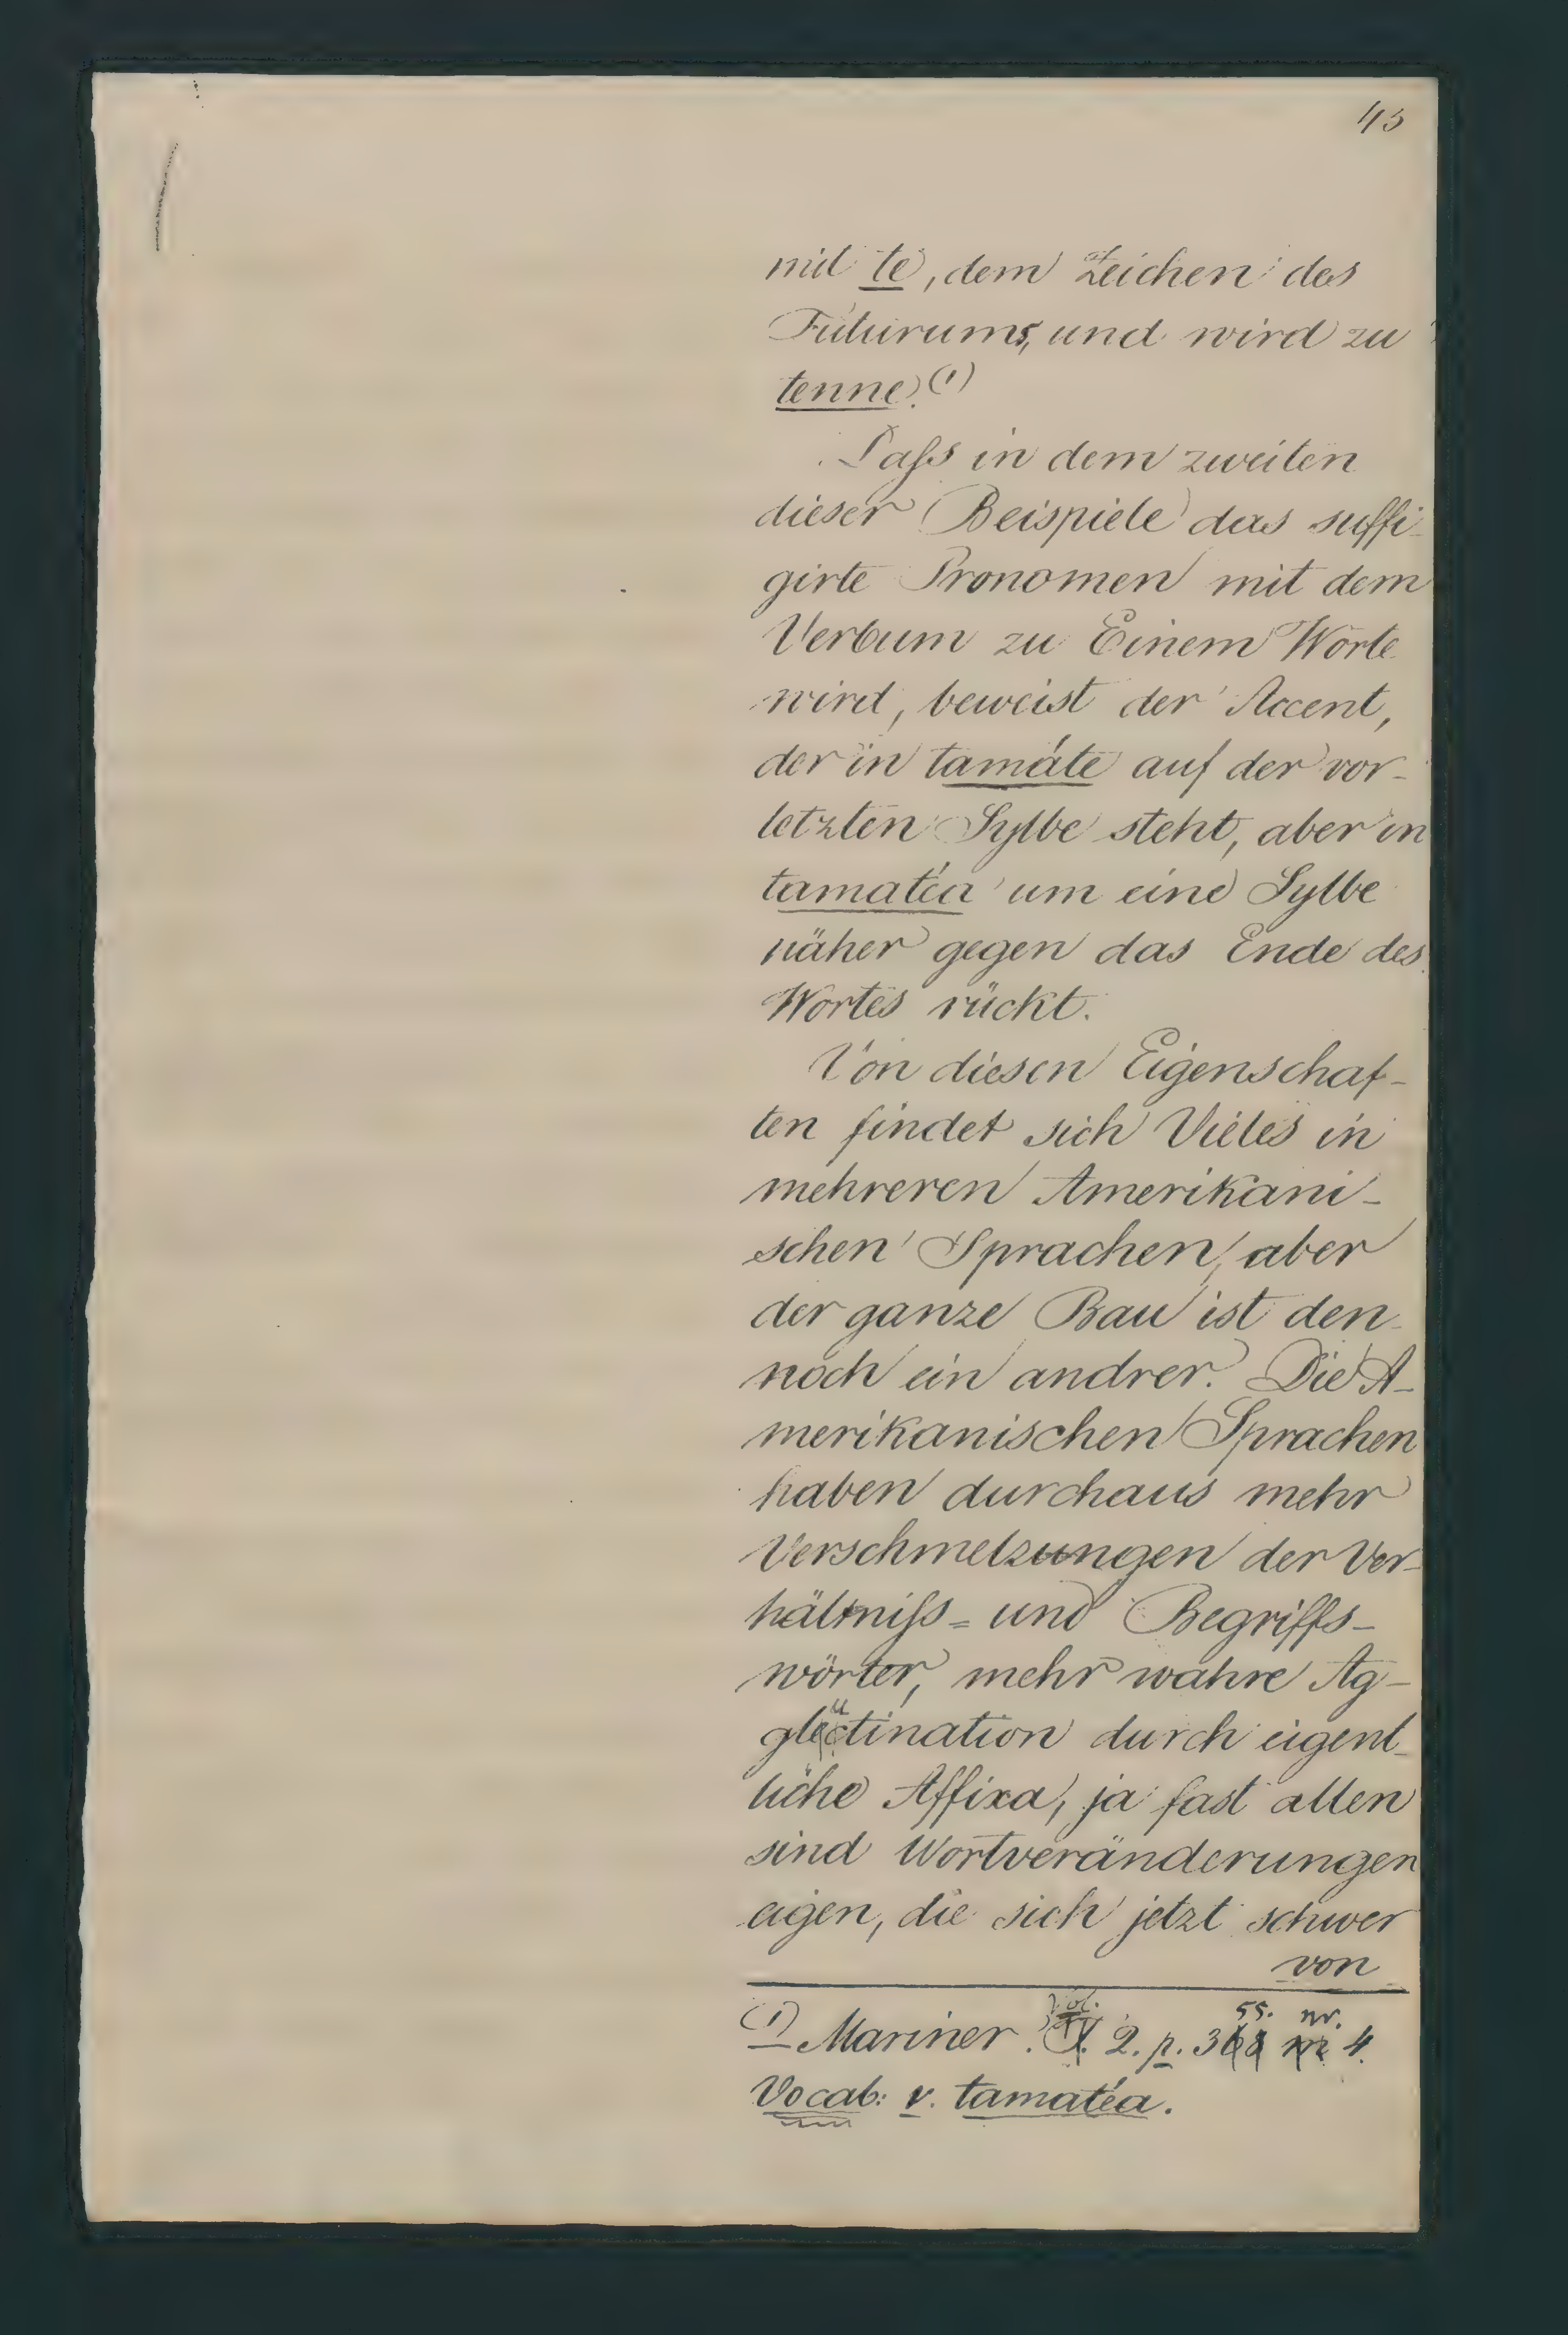 45
mit te, dem Zeichen des
Futurums, und wird zu
tenne. (1)
Daſs in dem zweiten
dieser Beispiele das suffi-
girte Pronomen mit dem
Verbum zu Einem Worte
wird, beweist der Accent,
der in tamáte auf der vor-
letzten Sylbe steht, aber in
tamatéa um eine Sylbe
näher gegen das Ende des
Wortes rückt.
Von diesen Eigenschaf-
ten findet sich Vieles in
mehreren Amerikani-
schen Sprachen, aber
der ganze Bau ist den-
noch ein andrer. Die A-
merikanischen Sprachen
haben durchaus mehr
Verschmelzungen der Ver-
hältniſs- und Begriffs-
wörter, mehr wahre Ag-
glutination durch eigent-
liche Affixa, ja fast allen
sind Wortveränderungen
eigen, die sich jetzt schwer
von
(1) Mariner. Vol. 2. p. 355. nr. 4.
Vocab: v. tamatéa.